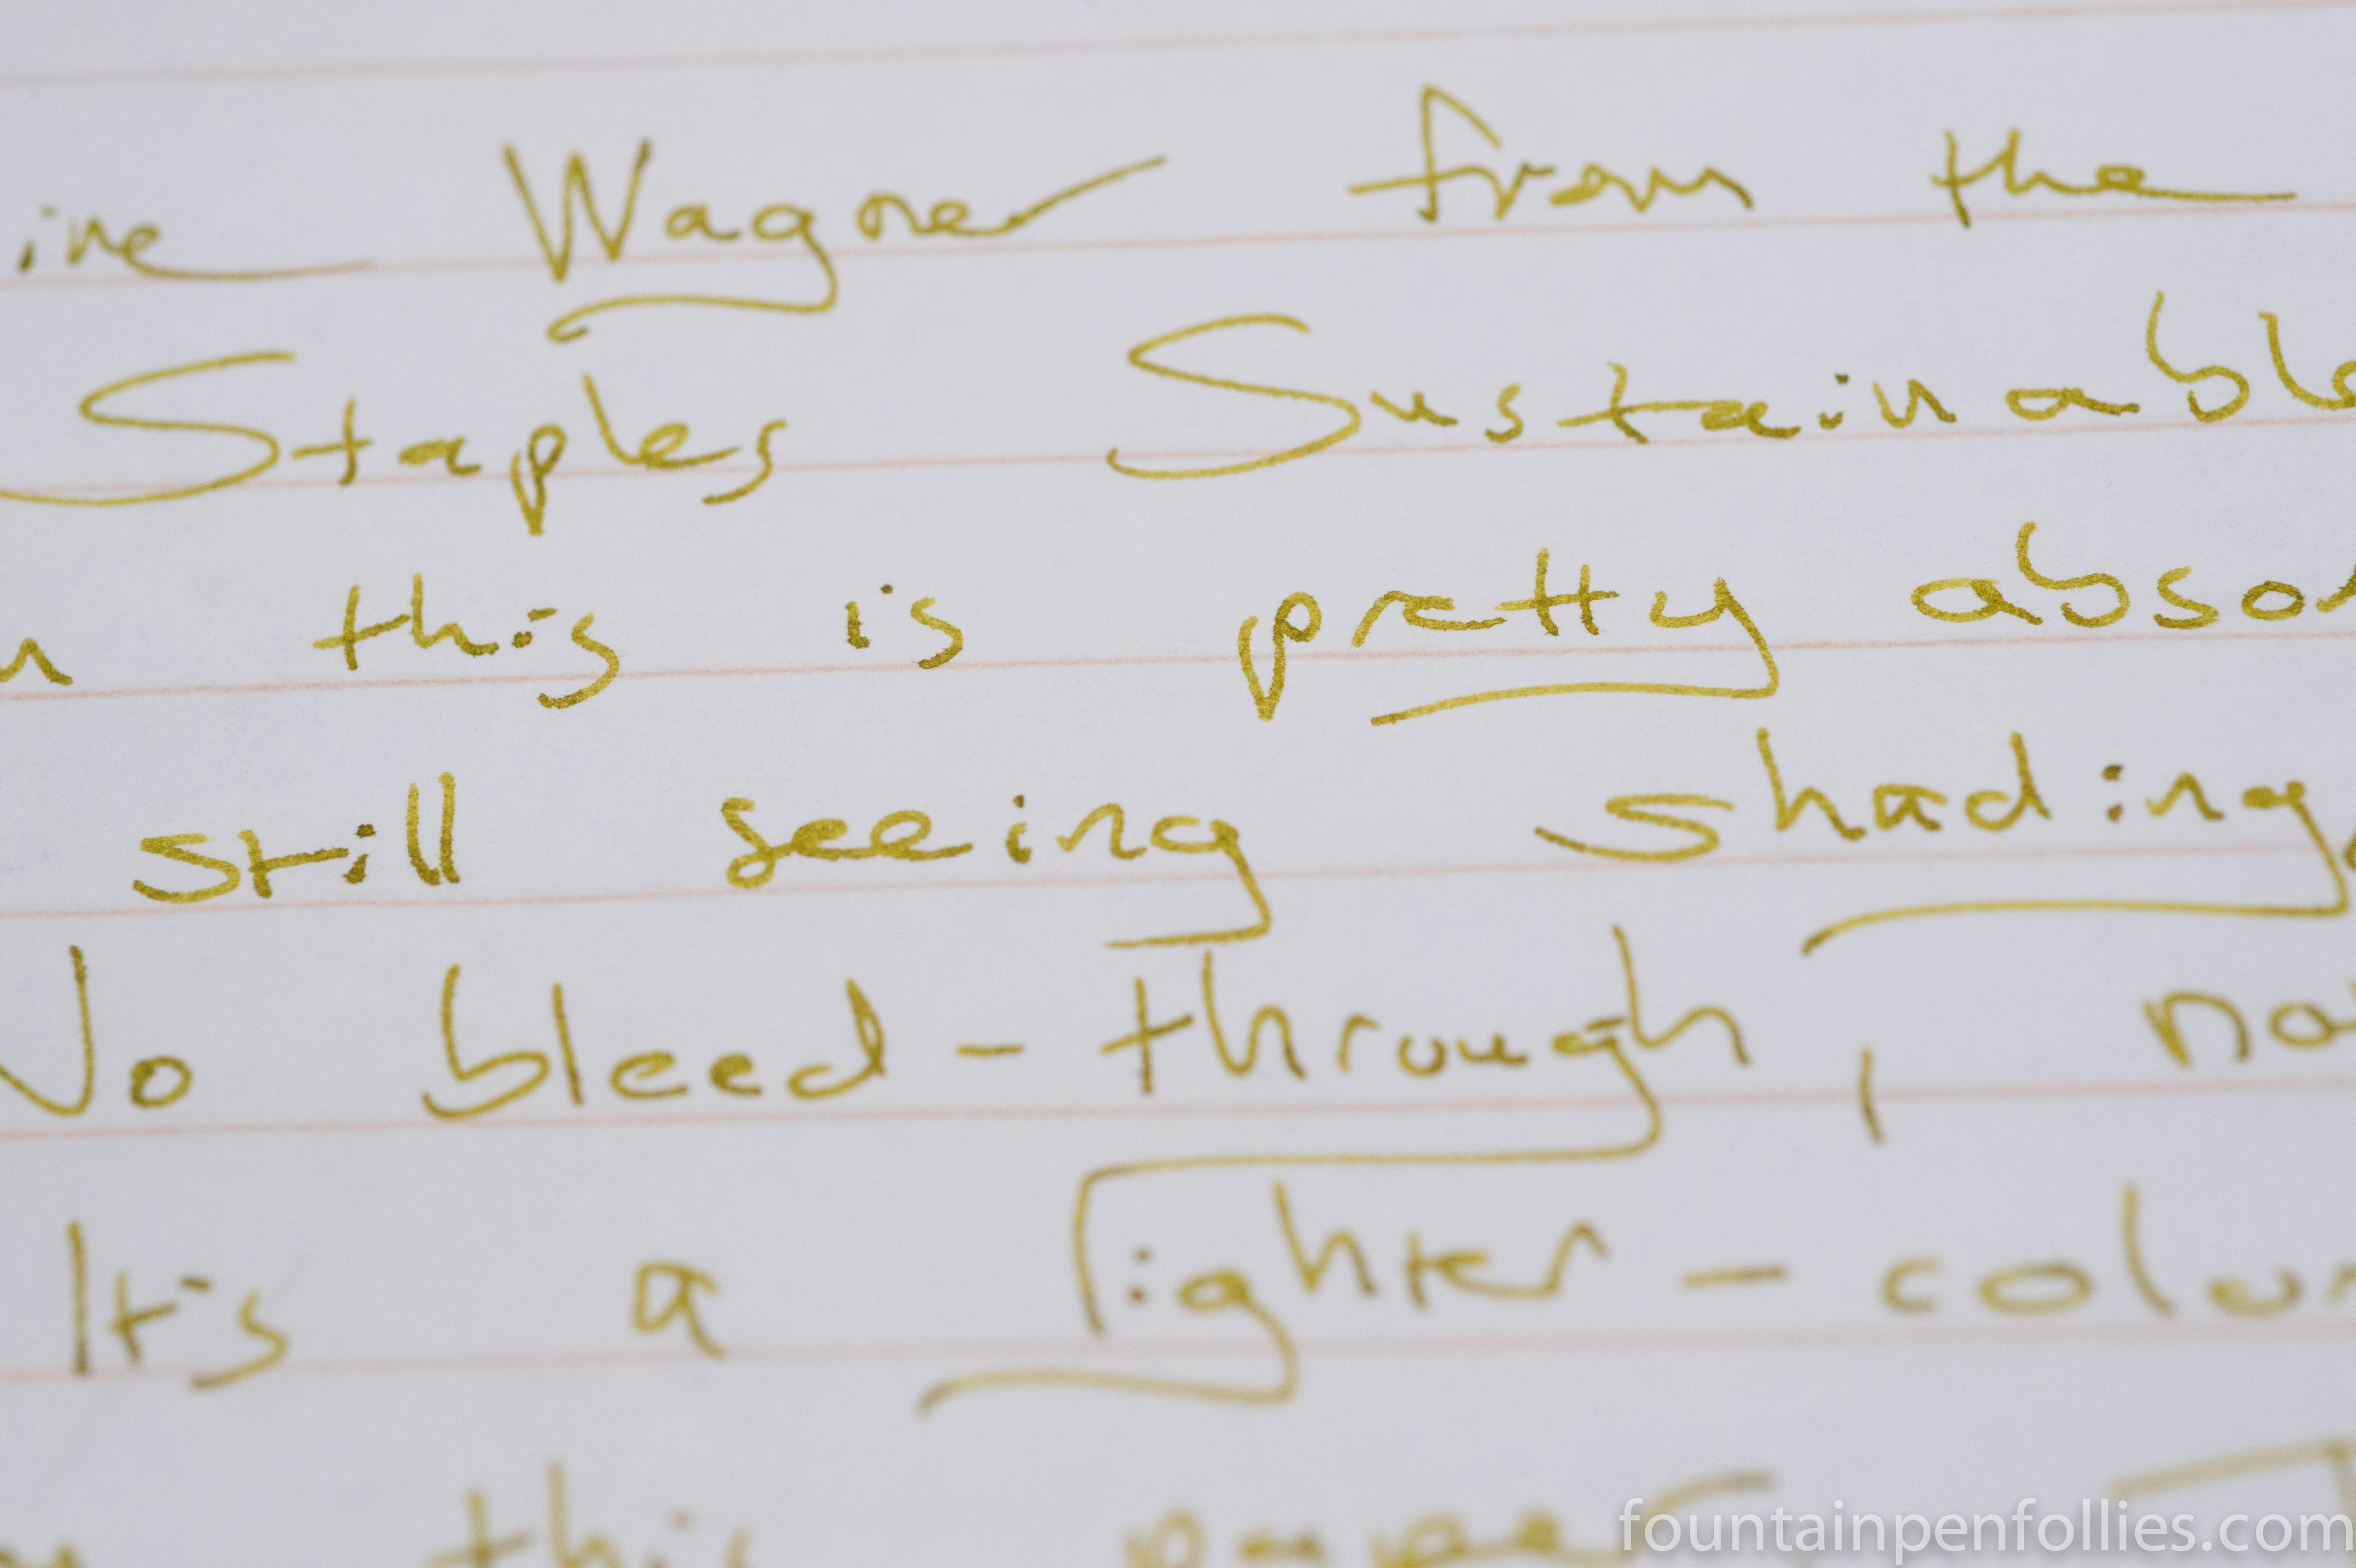 ine Wagner from the
Staples Sustainable
n this is pretty abso
still seeing shading,
No bleed-through, no
It's a lighter-color
this paper.
fountainpenfollies.com